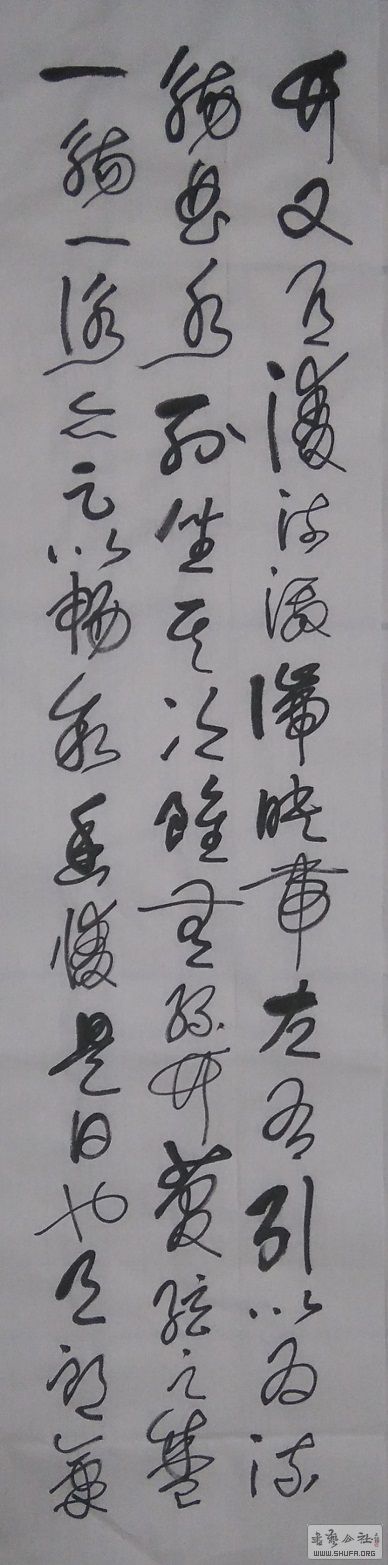 竹又有清流激湍映帶左右引以為流
觴曲水列坐其次雖無絲竹管弦之盛
一觴一詠亦足以暢敘幽情是日也天朗氣
書藝公社
WWW.SHUFA.ORG